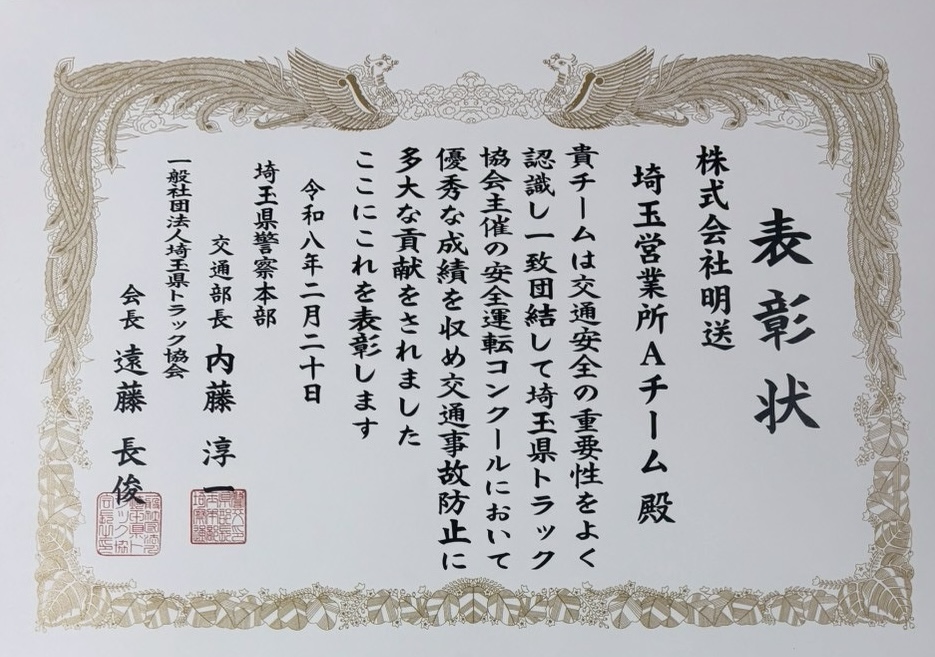 表彰状
株式会社明送
埼玉営業所Aチーム 殿
貴チームは交通安全の重要性をよく
認識し一致団結して埼玉県トラック
協会主催の安全運転コンクールにおいて
優秀な成績を収め交通事故防止に
多大な貢献をされました
ここにこれを表彰します
令和八年二月二十日
埼玉県警察本部
交通部長 内藤 淳一
一般社団法人埼玉県トラック協会
会長 遠藤 長俊